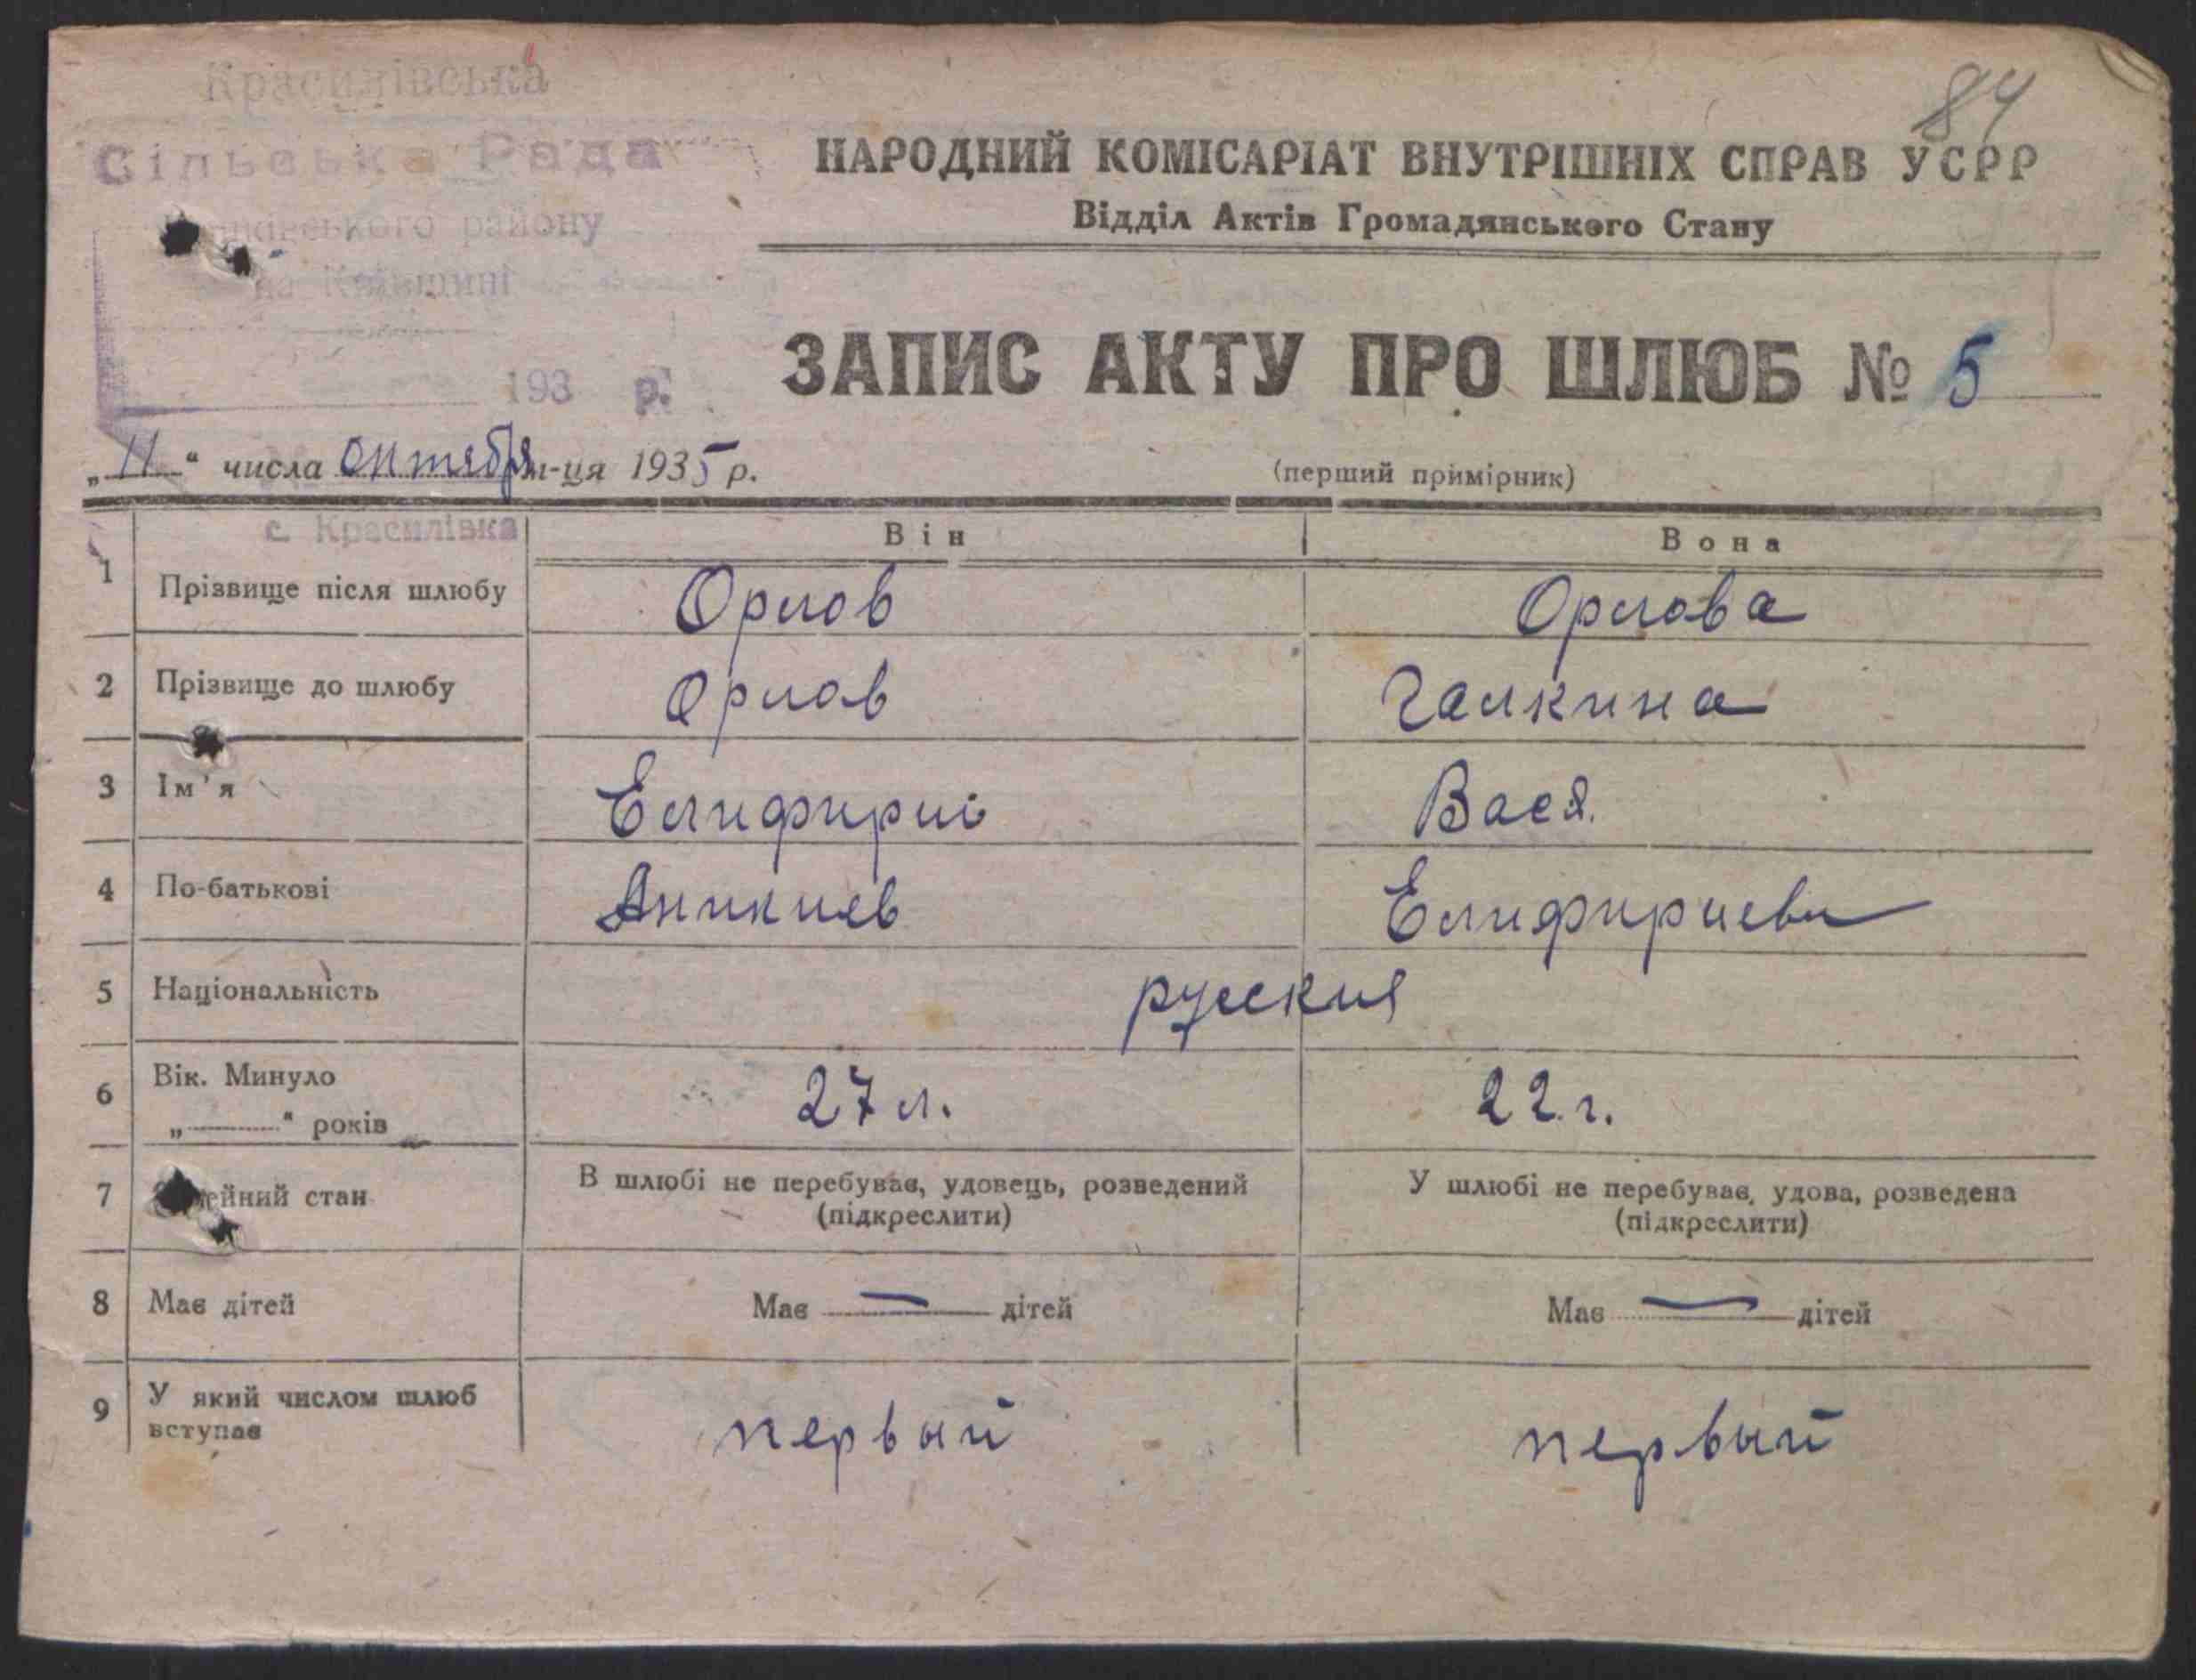 Красилівська
84
Сільська Рада
НАРОДНИЙ КОМІСАРІАТ ВНУТРІШНІХ СПРАВ УСРР
району
Відділ Актів Громадянського Стану
на Київщині
193 р.
ЗАПИС АКТУ ПРО ШЛЮБ № 5
„11“ числа октября м-ця 1935 р.
(перший примірник)
с. Красилівка
Він Вона
1 Прізвище після шлюбу Орлов Орлова
2 Прізвище до шлюбу Орлов Галкина
3 Ім'я Елифирий Вася.
4 По-батькові Аникиев Елифириевн
5 Національність русския
6 Вік. Минуло „ “ років 27 л. 22 г.
7 ейний стан В шлюбі не перебуває, удовець, розведений У шлюбі не перебуває, удова, розведена
(підкреслити) (підкреслити)
8 Має дітей Має — дітей Має — дітей
9 У який числом шлюб вступає первый первый